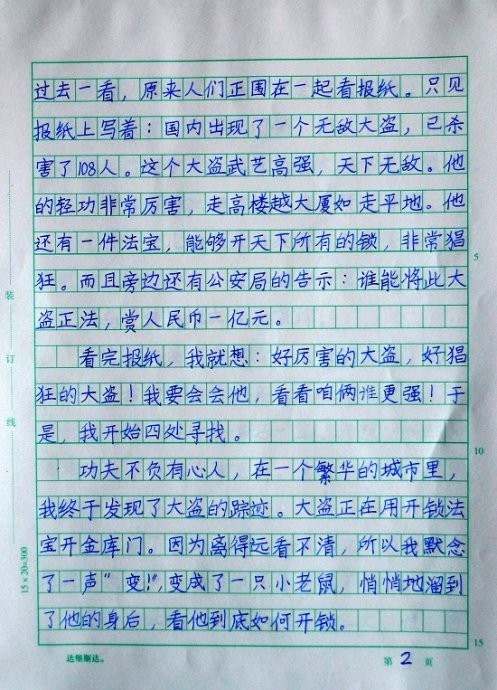 过去一看，原来人们正围在一起看报纸。只见
报纸上写着：国内出现了一个无敌大盗，已杀
害了108人。这个大盗武艺高强，天下无敌。他
的轻功非常厉害，走高楼越大厦如走平地。他
还有一件法宝，能够开天下所有的锁，非常猖
狂。而且旁边还有公安局的告示：谁能将此大
盗正法，赏人民币一亿元。
看完报纸，我就想：好厉害的大盗，好猖
狂的大盗！我要会会他，看看咱俩谁更强！于
是，我开始四处寻找。
功夫不负有心人，在一个繁华的城市里，
我终于发现了大盗的踪迹。大盗正在用开锁法
宝开金库门。因为离得远看不清，所以我默念
了一声“变！”，变成了一只小老鼠，悄悄地溜到
了他的身后，看他到底如何开锁。
装
订
线
15×20=300
5
10
15
达缀斯达。
第 2 页